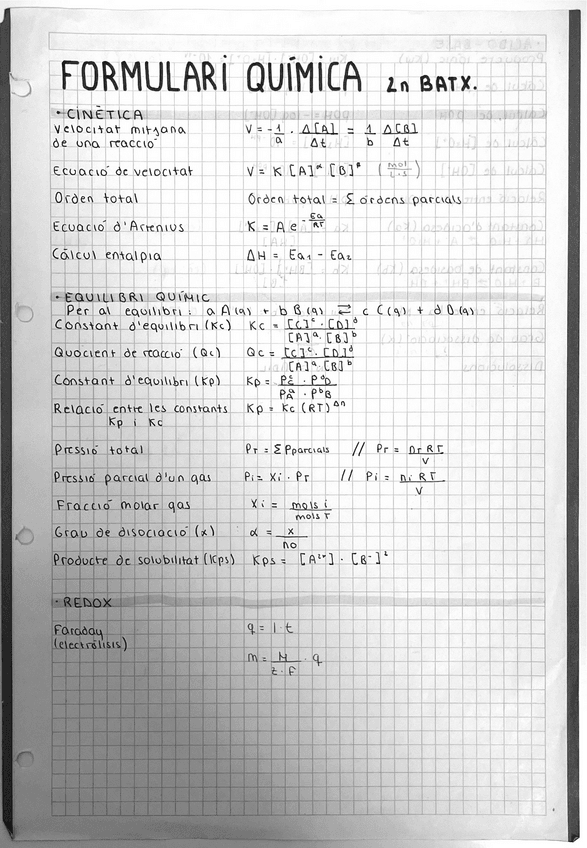 FORMULARI QUÍMICA 2n BATX.
· CINÈTICA
Velocitat mitjana de una reacció V = -1/a · Δ[A]/Δt = 1/b Δ[B]/Δt
Ecuació de velocitat V = K [A]^α [B]^β (mol/L·s)
Orden total Orden total = Σ órdens parcials
Ecuació d'Arrenius K = A e^-Ea/RT
Càlcul entalpia ΔH = Ea₁ - Ea₂
· EQUILIBRI QUÍMIC
Per al equilibri: a A(g) + b B(g) ⇄ c C(g) + d D(g)
Constant d'equilibri (Kc) Kc = [C]^c · [D]^d / [A]^a · [B]^b
Quocient de reacció (Qc) Qc = [C]^c · [D]^d / [A]^a · [B]^b
Constant d'equilibri (Kp) Kp = P^c_C · P^d_D / P^a_A · P^b_B
Relació entre les constants Kp = Kc (RT)^Δn
Kp i Kc
Pressió total PT = Σ Pparcials // PT = nT RT / V
Pressió parcial d'un gas Pi = Xi · PT // Pi = ni RT / V
Fracció molar gas Xi = mols i / mols T
Grau de disociació (x) α = x / no
Producte de solubilitat (Kps) Kps = [A²⁺] · [B⁻]²
· REDOX
Faraday q = I · t
(electrólisis)
m = M / z · F · q